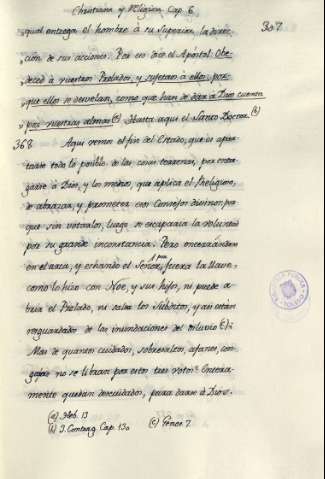 Christiana y Religiosa Cap. 6
307
qual entrega el hombre à su Superior, la direc
cion de sus acciones. Por eso dice el Apóstol: Obe
deced à vuestros Prelados, y sujetaos à ellos, por
que ellos se desvelan, como que han de dàr à Dios cuenta
por vuestras almas (a) Hasta aqui el Santo Doctor. (b)
368 Aqui vemos el fin del Estado, que es apar
tarse todo lo posible de las cosas terrenas, por entre
garse à Dios, y los medios, que aplica el Religioso,
de abrazar, y prometer los Consejos divinos, por
que sin votarlos, luego se escaparia la voluntad
por su grande inconstancia. Pero encerrandose
en el arca, y echando el Señor por fuera la llave,
como lo hizo con Noe, y sus hijos, ni puede a
brir el Prelado, ni salir los Subditos, y asi estàn
resguardados de las inundaciones del diluvio (c).
Mas de quantos cuidados, sobresaltos, afanes, con
gojas no se libran por estos tres votos? Entera
mente quedan descuidados, para darse à Dios.
(a) Heb. 13
(b) S. Cap. 130
(c) Genes. 7